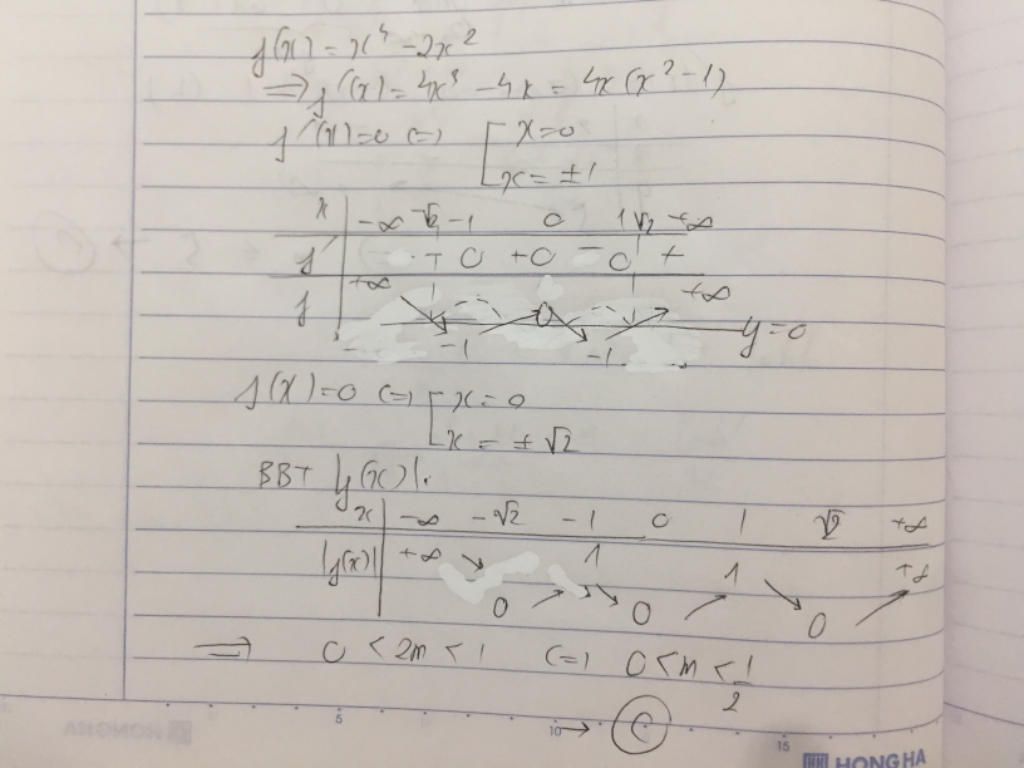 f(x) = x⁴ - 2x²
⇒ f'(x) = 4x³ - 4x = 4x(x² - 1)
f'(x) = 0 (=) [ x = 0
x = ±1
x | -∞ -√2 -1 0 1 √2 +∞
f' | - 0 + 0 - 0 +
f | +∞ -1 0 -1 +∞
y = 0
f(x) = 0 (=) [ x = 0
x = ±√2
BBT |f(x)|.
x | -∞ -√2 -1 0 1 √2 +∞
|f(x)| | +∞ ↘ 0 ↗ 1 ↘ 0 ↗ 1 ↘ 0 ↗ +∞
⇒ 0 < 2m < 1 (=) 0 < m < 1/2
→ C
5 10 15
HONG HA